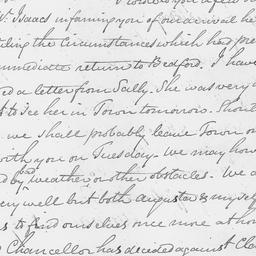 Mr. Isaacs informing you of our arrival he
the circumstances which had pre
immediate return to Bedford. I have
ed a letter from Sally. She was very
to see her in Town tomorrow. Shoul
we shall probably leave Town on
with you on Tuesday. We may how
d by bad weather or other obstacles. We a
very well but both Augustus & myself
us to find ourselves once more at hom
Chancellor has decided against Cla